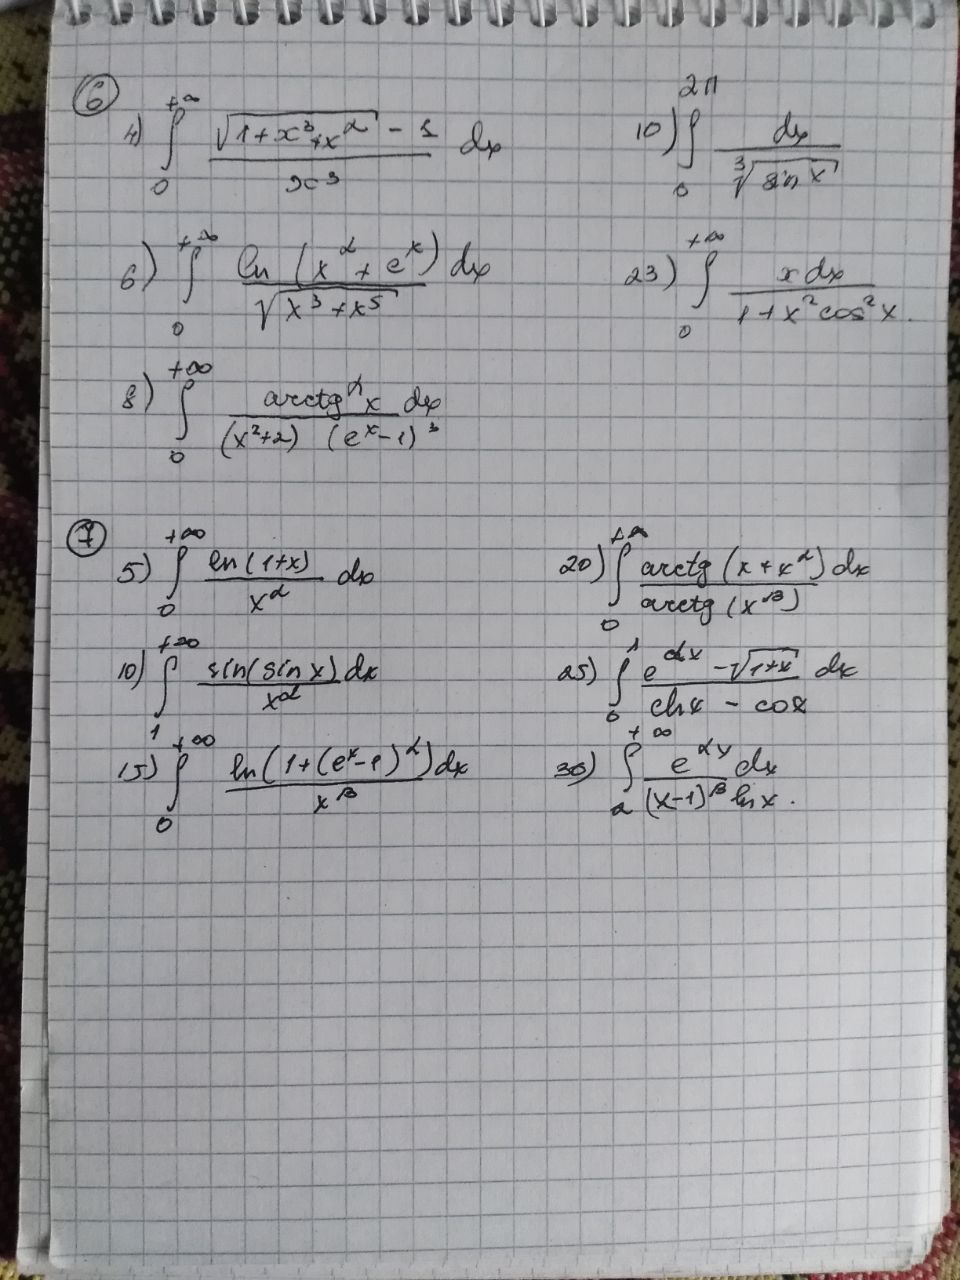 6
4) ∫₀^{+∞} (√(1+x³+x^α) - 1)/x³ dx
10) ∫₀^{2π} dx/∛(sin x)
6) ∫₀^{+∞} ln(x^α + e^x) dx/√(x³+x⁵)
23) ∫₀^{+∞} x dx/(1+x²cos²x).
8) ∫₀^{+∞} arctg^α x dx/((x²+2) (e^x-1)³)
7
5) ∫₀^{+∞} ln(1+x)/x^α dx
20) ∫₀^{+∞} arctg(x+x^α) dx/arctg(x^β)
10) ∫₁^{+∞} sin(sin x) dx/x^α
25) ∫₀^1 (e^{αx} - √(1+x))/(chx - cosx) dx
15) ∫₀^{+∞} ln(1+(e^x-1)^α) dx/x^β
30) ∫₂^{+∞} e^{αx} dx/((x-1)^β ln x).